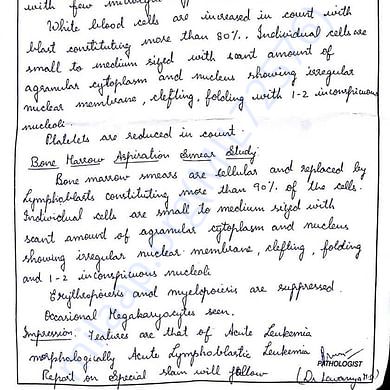 with few
White blood cells are increased in count with
blast constituting more than 80%. Individual cells are
small to medium sized with scant amount of
agranular cytoplasm and nucleus showing irregular
nuclear membrane, clefting, folding with 1-2 inconspicuous
nucleoli.
Platelets are reduced in count.
Bone Marrow Aspiration Smear Study:
Bone marrow smears are cellular and replaced by
Lymphoblasts constituting more than 90% of the cells.
Individual cells are small to medium sized with
scant amount of agranular cytoplasm and nucleus
showing irregular nuclear membrane, clefting, folding
and 1-2 inconspicuous nucleoli
Erythropoiesis and myelopoiesis are suppressed.
Occasional Megakaryocytes seen.
Impression: Features are that of Acute Leukemia
morphologically Acute Lymphoblastic Leukemia
PATHOLOGIST
Report on Special stain will follow (Dr.